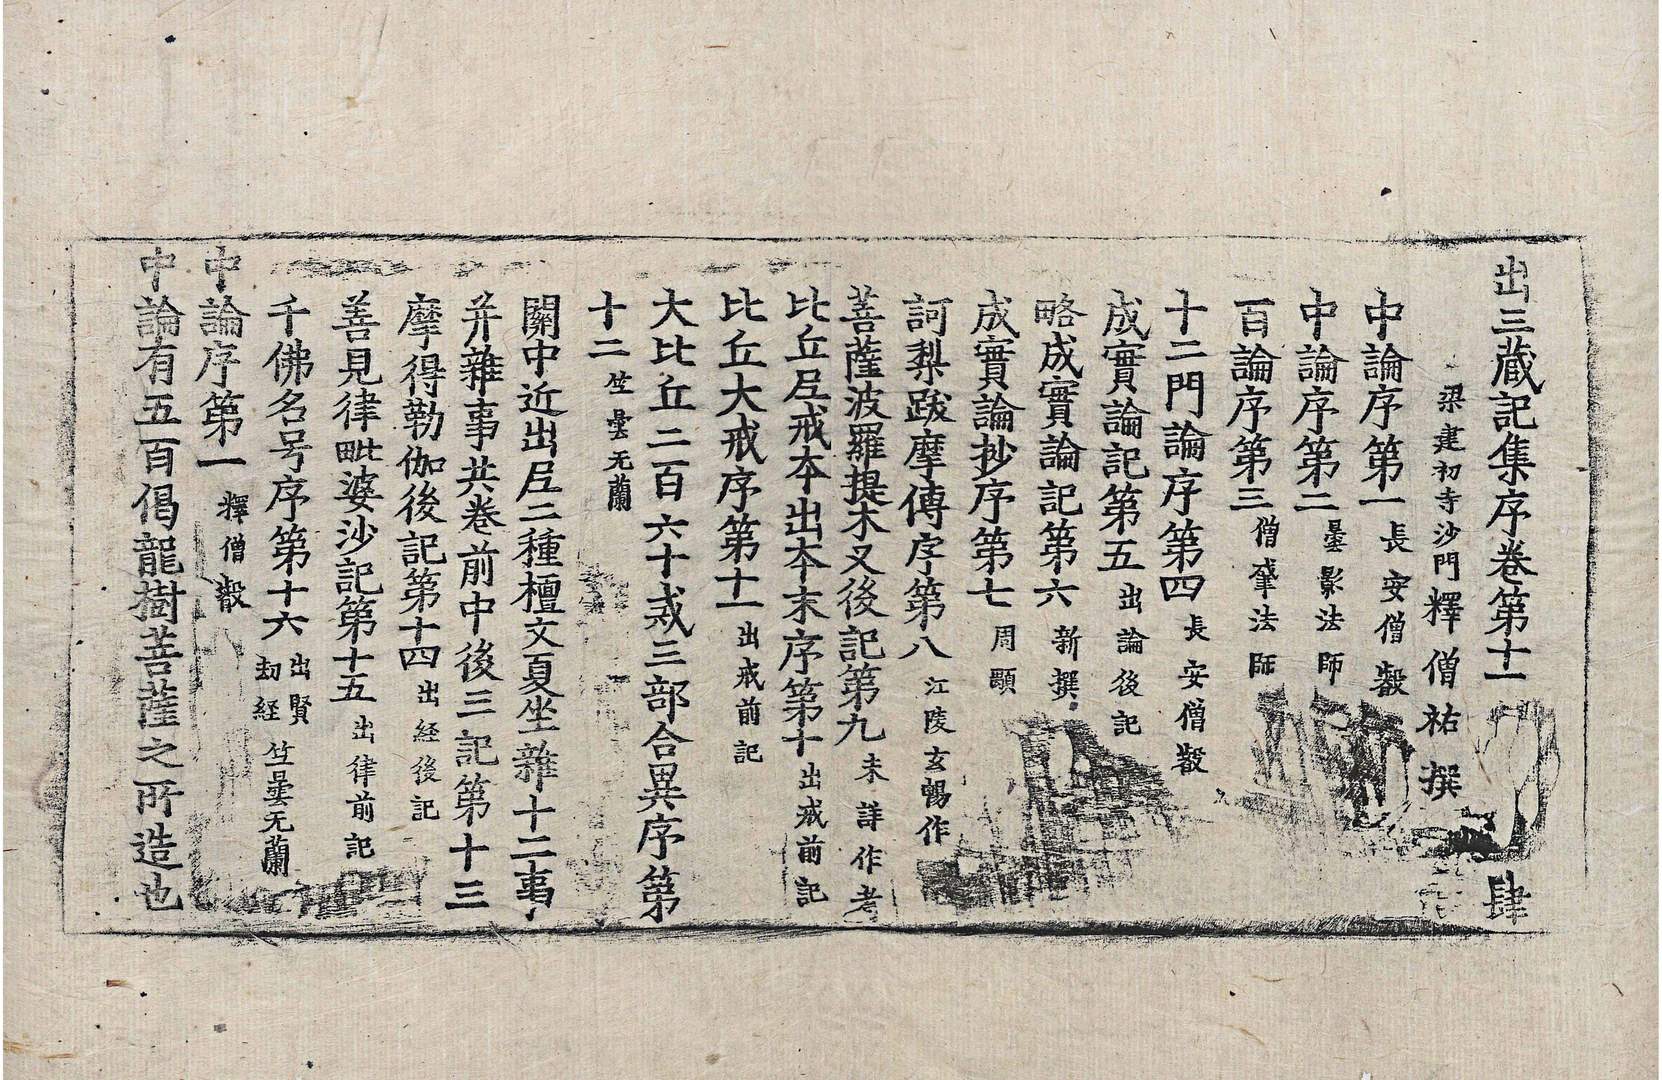 出三藏記集序卷第十一 肆
梁建初寺沙門釋僧祐撰
中論序第一 長安僧叡
中論序第二 曇影法師
百論序第三 僧肇法師
十二門論序第四 長安僧叡
成實論記第五 出論後記
略成實論記第六 新撰
成實論抄序第七 周顒
訶梨跋摩傳序第八 江陵玄暢作
菩薩波羅提木叉後記第九 未詳作者
比丘尼戒本出本末序第十 出戒前記
比丘大戒序第十一 出戒前記
大比丘二百六十戒三部合異序第
十二 竺曇无蘭
關中近出尼二種檀文夏坐雜十二事
并雜事共卷前中後三記第十三
摩得勒伽後記第十四 出経後記
善見律毗婆沙記第十五 出律前記
千佛名号序第十六 出賢劫経 竺曇无蘭
中論序第一 釋僧叡
中論有五百偈龍樹菩薩之所造也